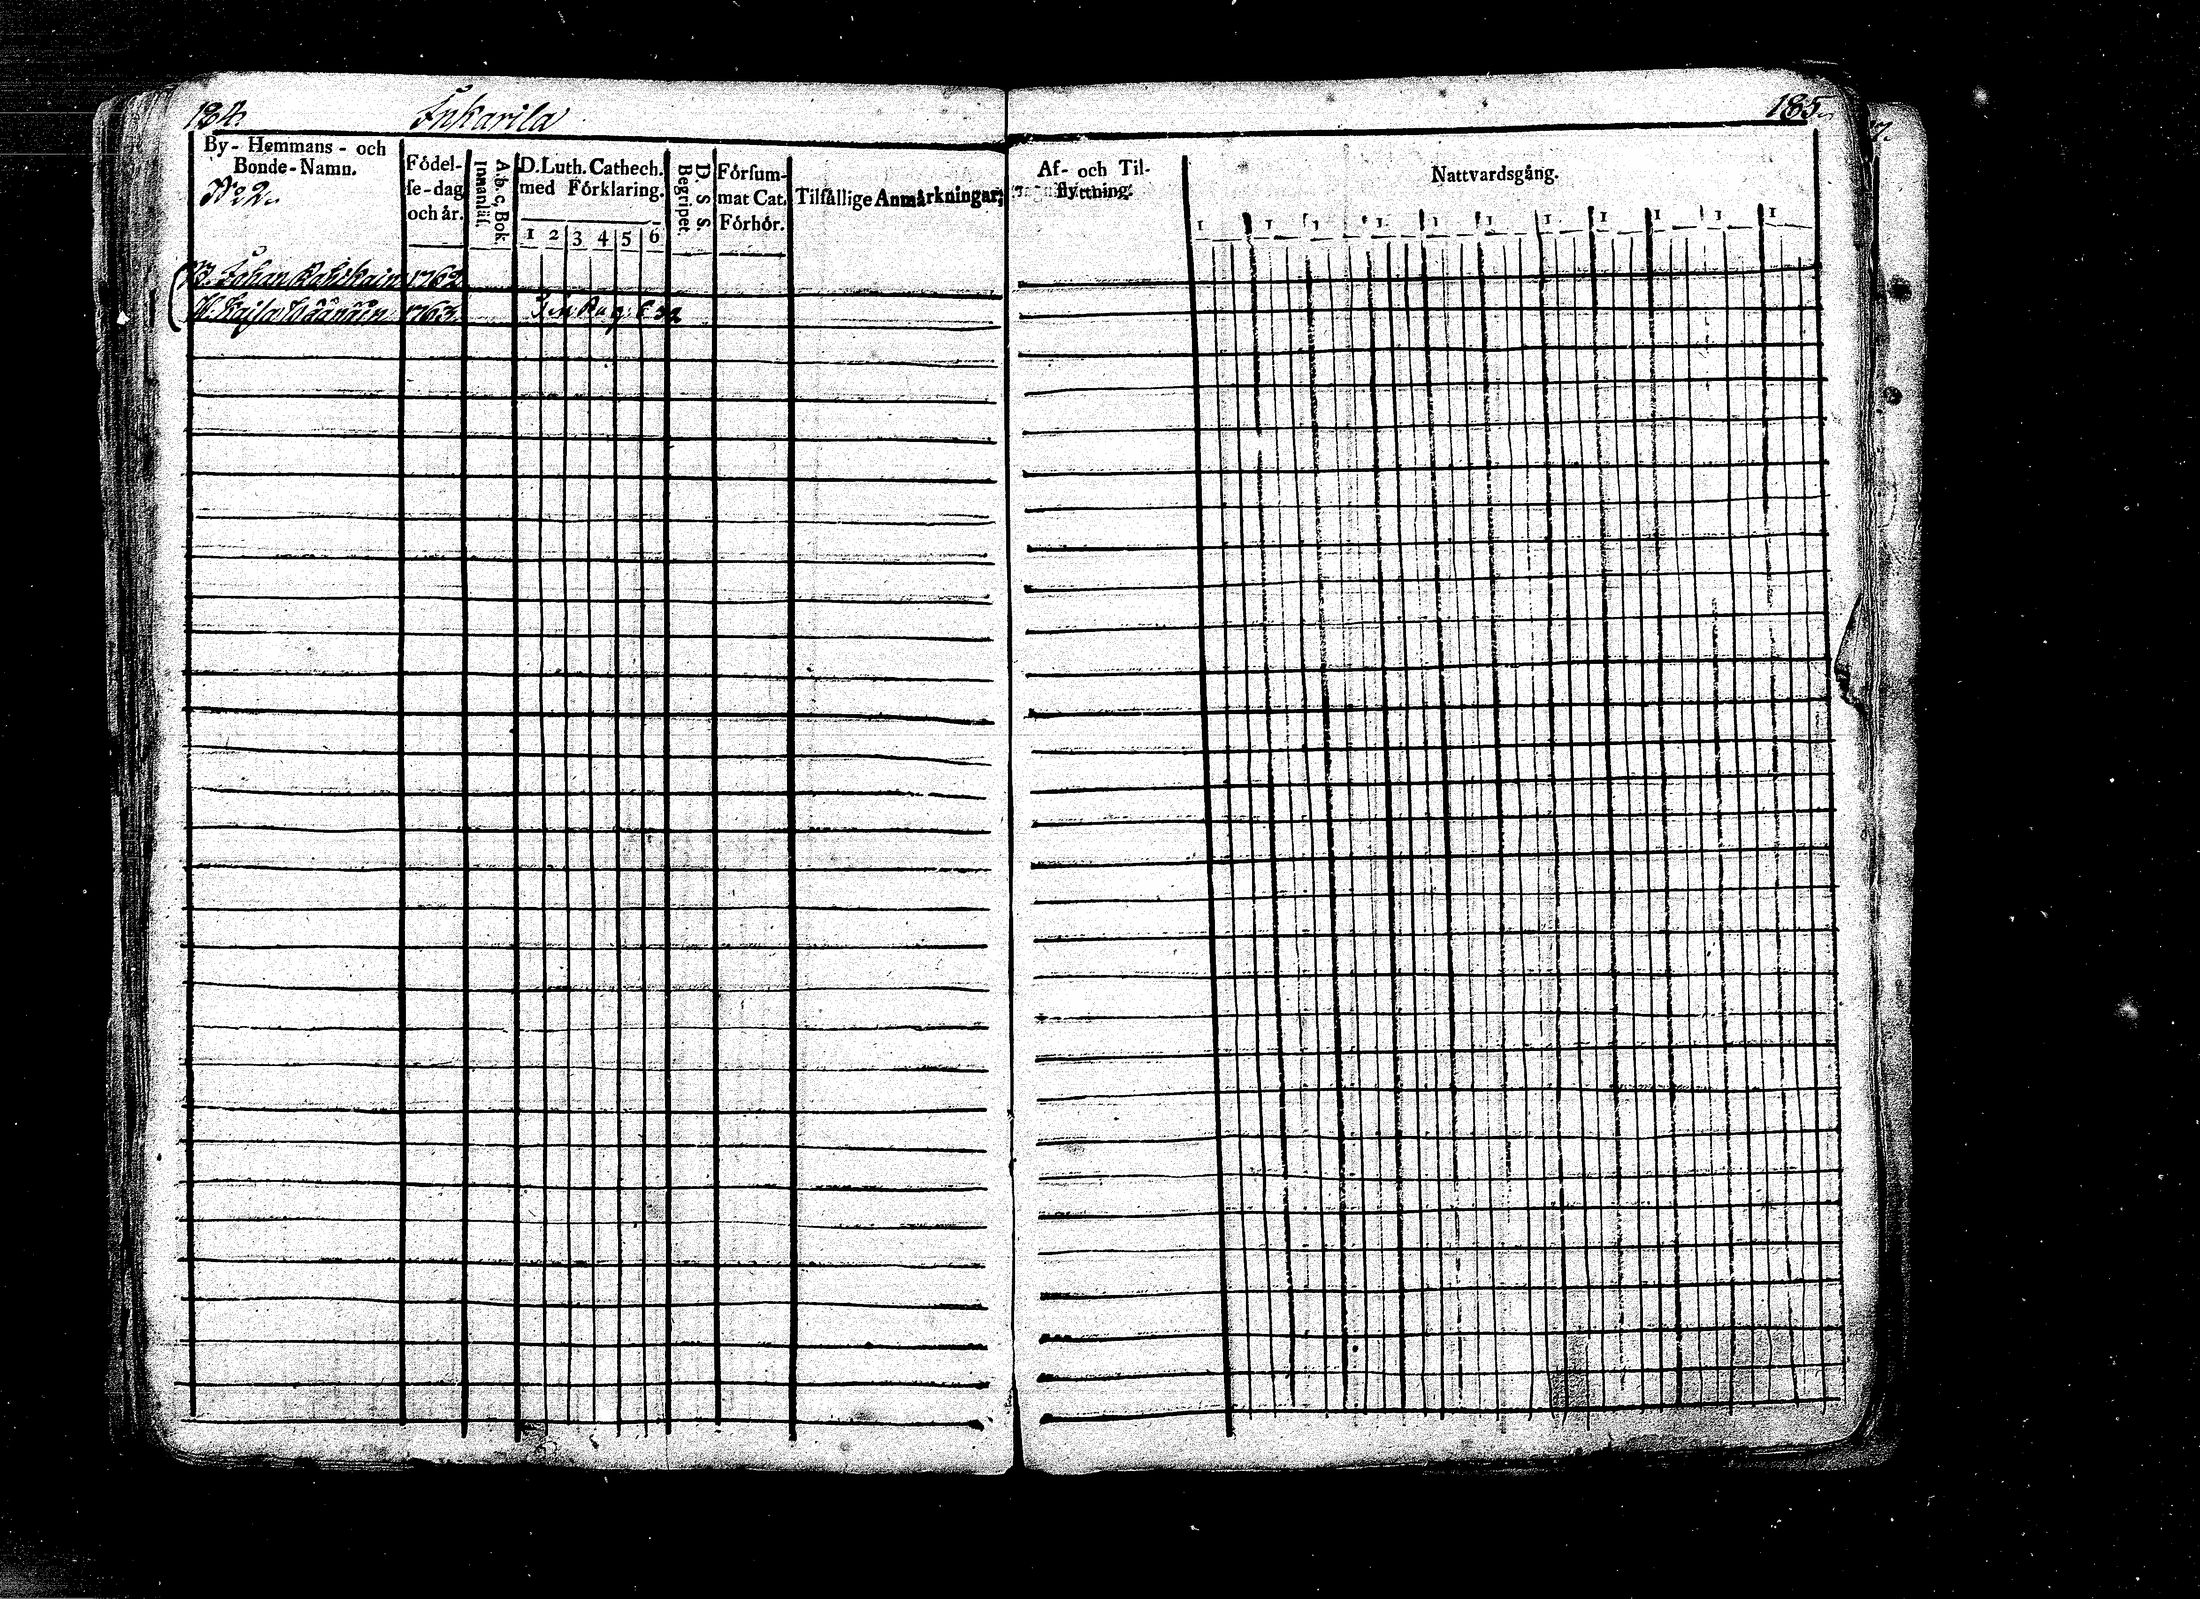 184.
Inkarila
185.
7.
By- Hemmans- och
Bonde-Namn.
No 2.
Födel-
se-dag
och år.
A.b.c. Bok
Innanläs.
D. Luth. Cathech.
med Förklaring.
1 2 3 4 5 6
D. S. S.
Begripet.
Försum-
mat Cat.
Förhör.
Tilfällige Anmärkningar;
Af- och Til-
flyttning.
Nattvardsgång.
1 1 1 1 1 1 1 1 1 1 1
Johan 1762
H. Kajsa 1763.